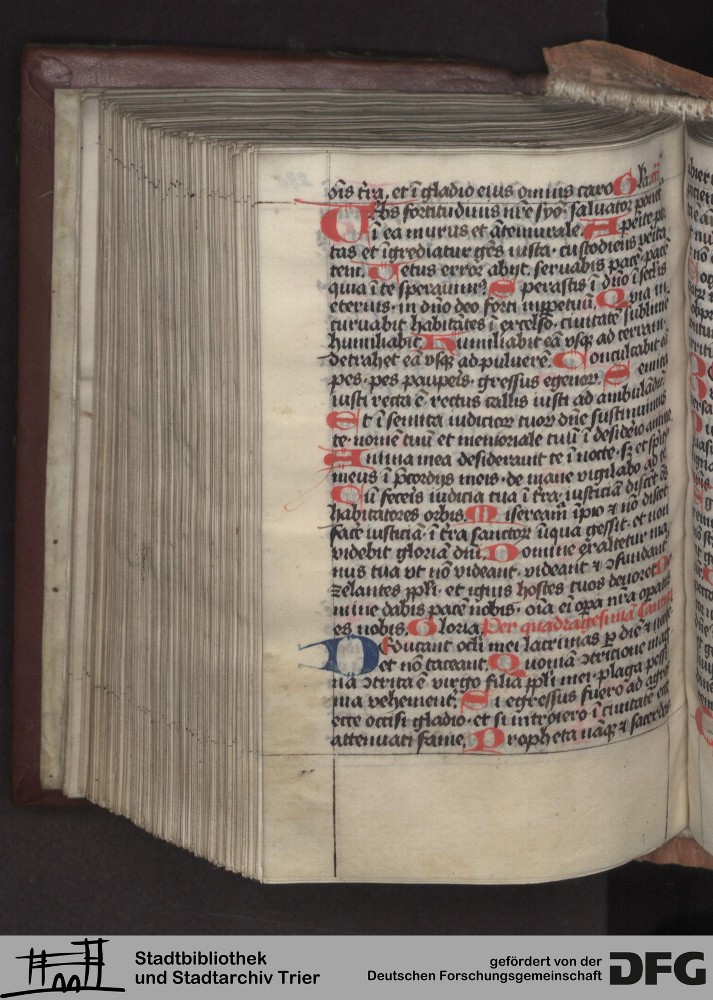 oīs t̄ra. et ī gladio eius omnis caro Gla
Urbs fortitudinis nr̄e syō saluator ponet᷑
ī ea murus et āte murale. Aperite por
tas et īgrediatur gēs iusta. custodiens v̄ita
tem. Vetus error abijt. seruabis pacē. pacē
quia ī te sperauim⁹. Sperastis ī dn̄o ī seclis
eternis. in dn̄o deo forti ī ꝑpetuū. Quia in
curuabit habitātes ī excelso. ciuitatē sublimē
humiliabit. Humiliabit eā vsqꝫ ad terram.
detrahet eā vsqꝫ ad puluerē. Conculcabit eā
pes. pes pauperis. gressus egenoꝝ. Semita
iusti recta ē rectus callis iusti ad ambulādū.
Et ī semita iudicioꝝ tuoꝝ dn̄e sustinuimus
te. nomē tuū et memoriale tuū ī desiderio anime
Anima mea desiderauit te ī nocte. sꝫ et spiritu
meus ī p̄cordijs meis. de mane vigilabo ad te
Cū feceris iudicia tua ī t̄ra. iusticiā discēt oēs
habitatores orbis. Misereamᷣ īpio ⁊ nō discet
face iusticiā. ī t̄ra sanctoꝝ iniqua gessit. et non
videbit gloriā dni. Domine exaltetur ma
nus tua vt nō videant. videant ⁊ ↄfundant᷑
zelantes ppl̄i. et ignis hostes tuos deuoret. Do
mine dabis pacē nobis. oīa eī opa nr̄a opatus
es nobis. Gloria. Per quadragesimā Cantica
Deducant oculi mei lacrimas ꝑ diē ⁊ noctē
et nō taceant. Quoniā ↄtritione mag
nā ↄtrita ē virgo filia ppl̄i mei. plaga pessi
ma vehement᷑. Si egressus fuero ad agros
ecce occisi gladio. et si introiero ī ciuitatē ecce
attenuati fame. Propheta nāqꝫ ⁊ sacerdos
Stadtbibliothek
und Stadtarchiv Trier
gefördert von der
Deutschen Forschungsgemeinschaft
DFG